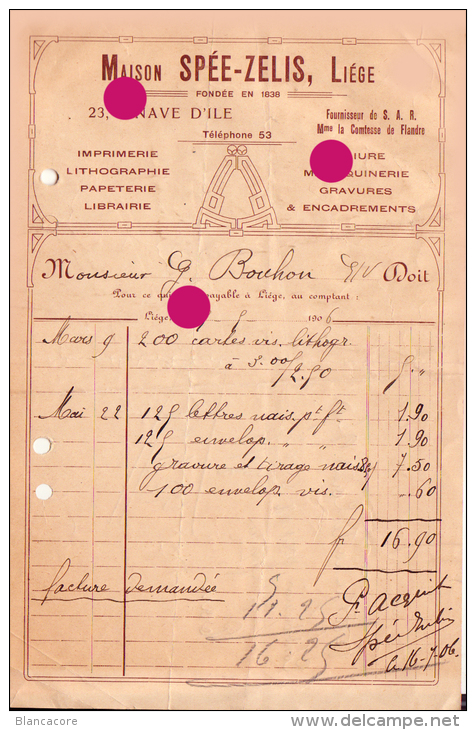 MAISON SPÉE-ZELIS, LIÉGE
FONDÉE EN 1838
23, NAVE D'ILE
Téléphone 53
Fournisseur de S. A. R.
Mme la Comtesse de Flandre
IMPRIMERIE
LITHOGRAPHIE
PAPETERIE
LIBRAIRIE
IURE
M QUINERIE
GRAVURES
& ENCADREMENTS
Monsieur G. Bouhon E/V Doit
Pour ce qui payable à Liége, au comptant :
Liége, 1906
Mars 9 200 cartes vis. lithogr.
à 5.00 / 2.50 5.„
Mai 22 125 lettres nais. pt ft 1.90
125 envelop. „ „ 1.90
gravure et tirage nais. 7.50
100 envelop vis. -.60
fr 16.90
facture demandée
Pr acquit
Spée Zelis
16-7-06.
11.25
16.25
Blancacore
www.delcampe.net